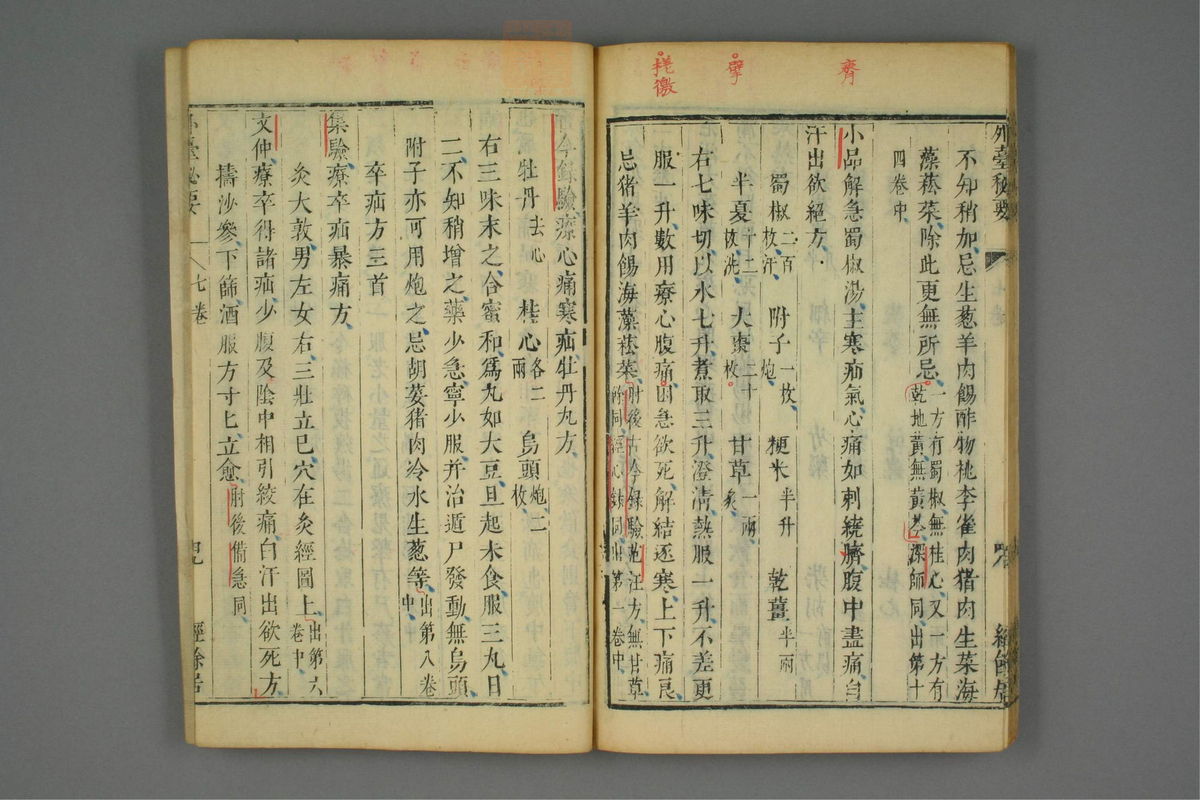 齊
擘
㧌徼
外臺秘要
不知稍加忌生葱羊肉餳酢物桃李雀肉猪肉生菜海
藻菘菜除此更無所忌一方有蜀椒無桂心又一方有
乾地黃無黃芩深師同出第十
四卷中
小品解急蜀椒湯主寒疝氣心痛如刺繞臍腹中盡痛自
汗出欲絕方
蜀椒二百枚汗 附子一枚炮 粳米半升 乾薑半兩
半夏十二枚洗 大棗二十枚 甘草一兩炙
右七味切以水七升煮取三升澄清熱服一升不差更
服一升數用療心腹痛困急欲死解結逐寒上下痛良
忌猪羊肉餳海藻菘菜肘後古今錄驗范汪方無甘草
附同經心錄同出第一卷中
古今錄驗療心痛寒疝牡丹丸方
牡丹去心 桂心各二兩 烏頭炮二枚
右三味末之合蜜和為丸如大豆旦起未食服三丸日
二不知稍增之藥少急寧少服并治遁尸發動無烏頭
附子亦可用炮之忌胡荽猪肉冷水生葱等出第八卷中
卒疝方三首
集驗療卒疝暴痛方
灸大敦男左女右三壯立已穴在灸經圖上出第六卷中
文仲療卒得諸疝少腹及陰中相引絞痛白汗出欲死方
擣沙參下篩酒服方寸匕立愈肘後備急同
外臺秘要
七卷
經餘居